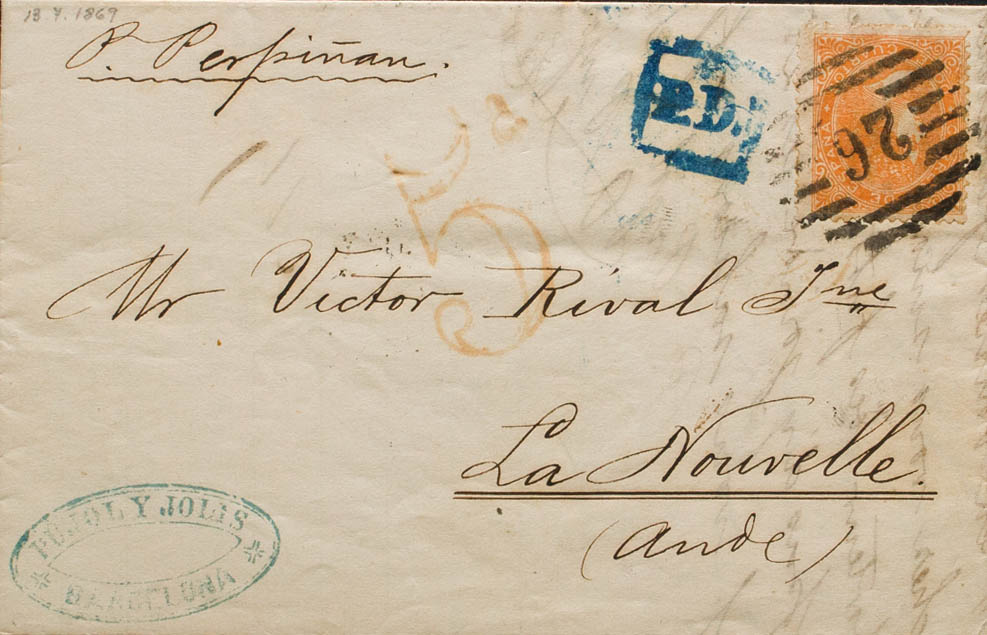 13.7.1869
P. Perpiñan.
P.D.
26
ESPAÑA
5
Mr Victor Rival Jne
La Nouvelle.
(Aude)
PUJOL Y JOLIS
BARCELONA